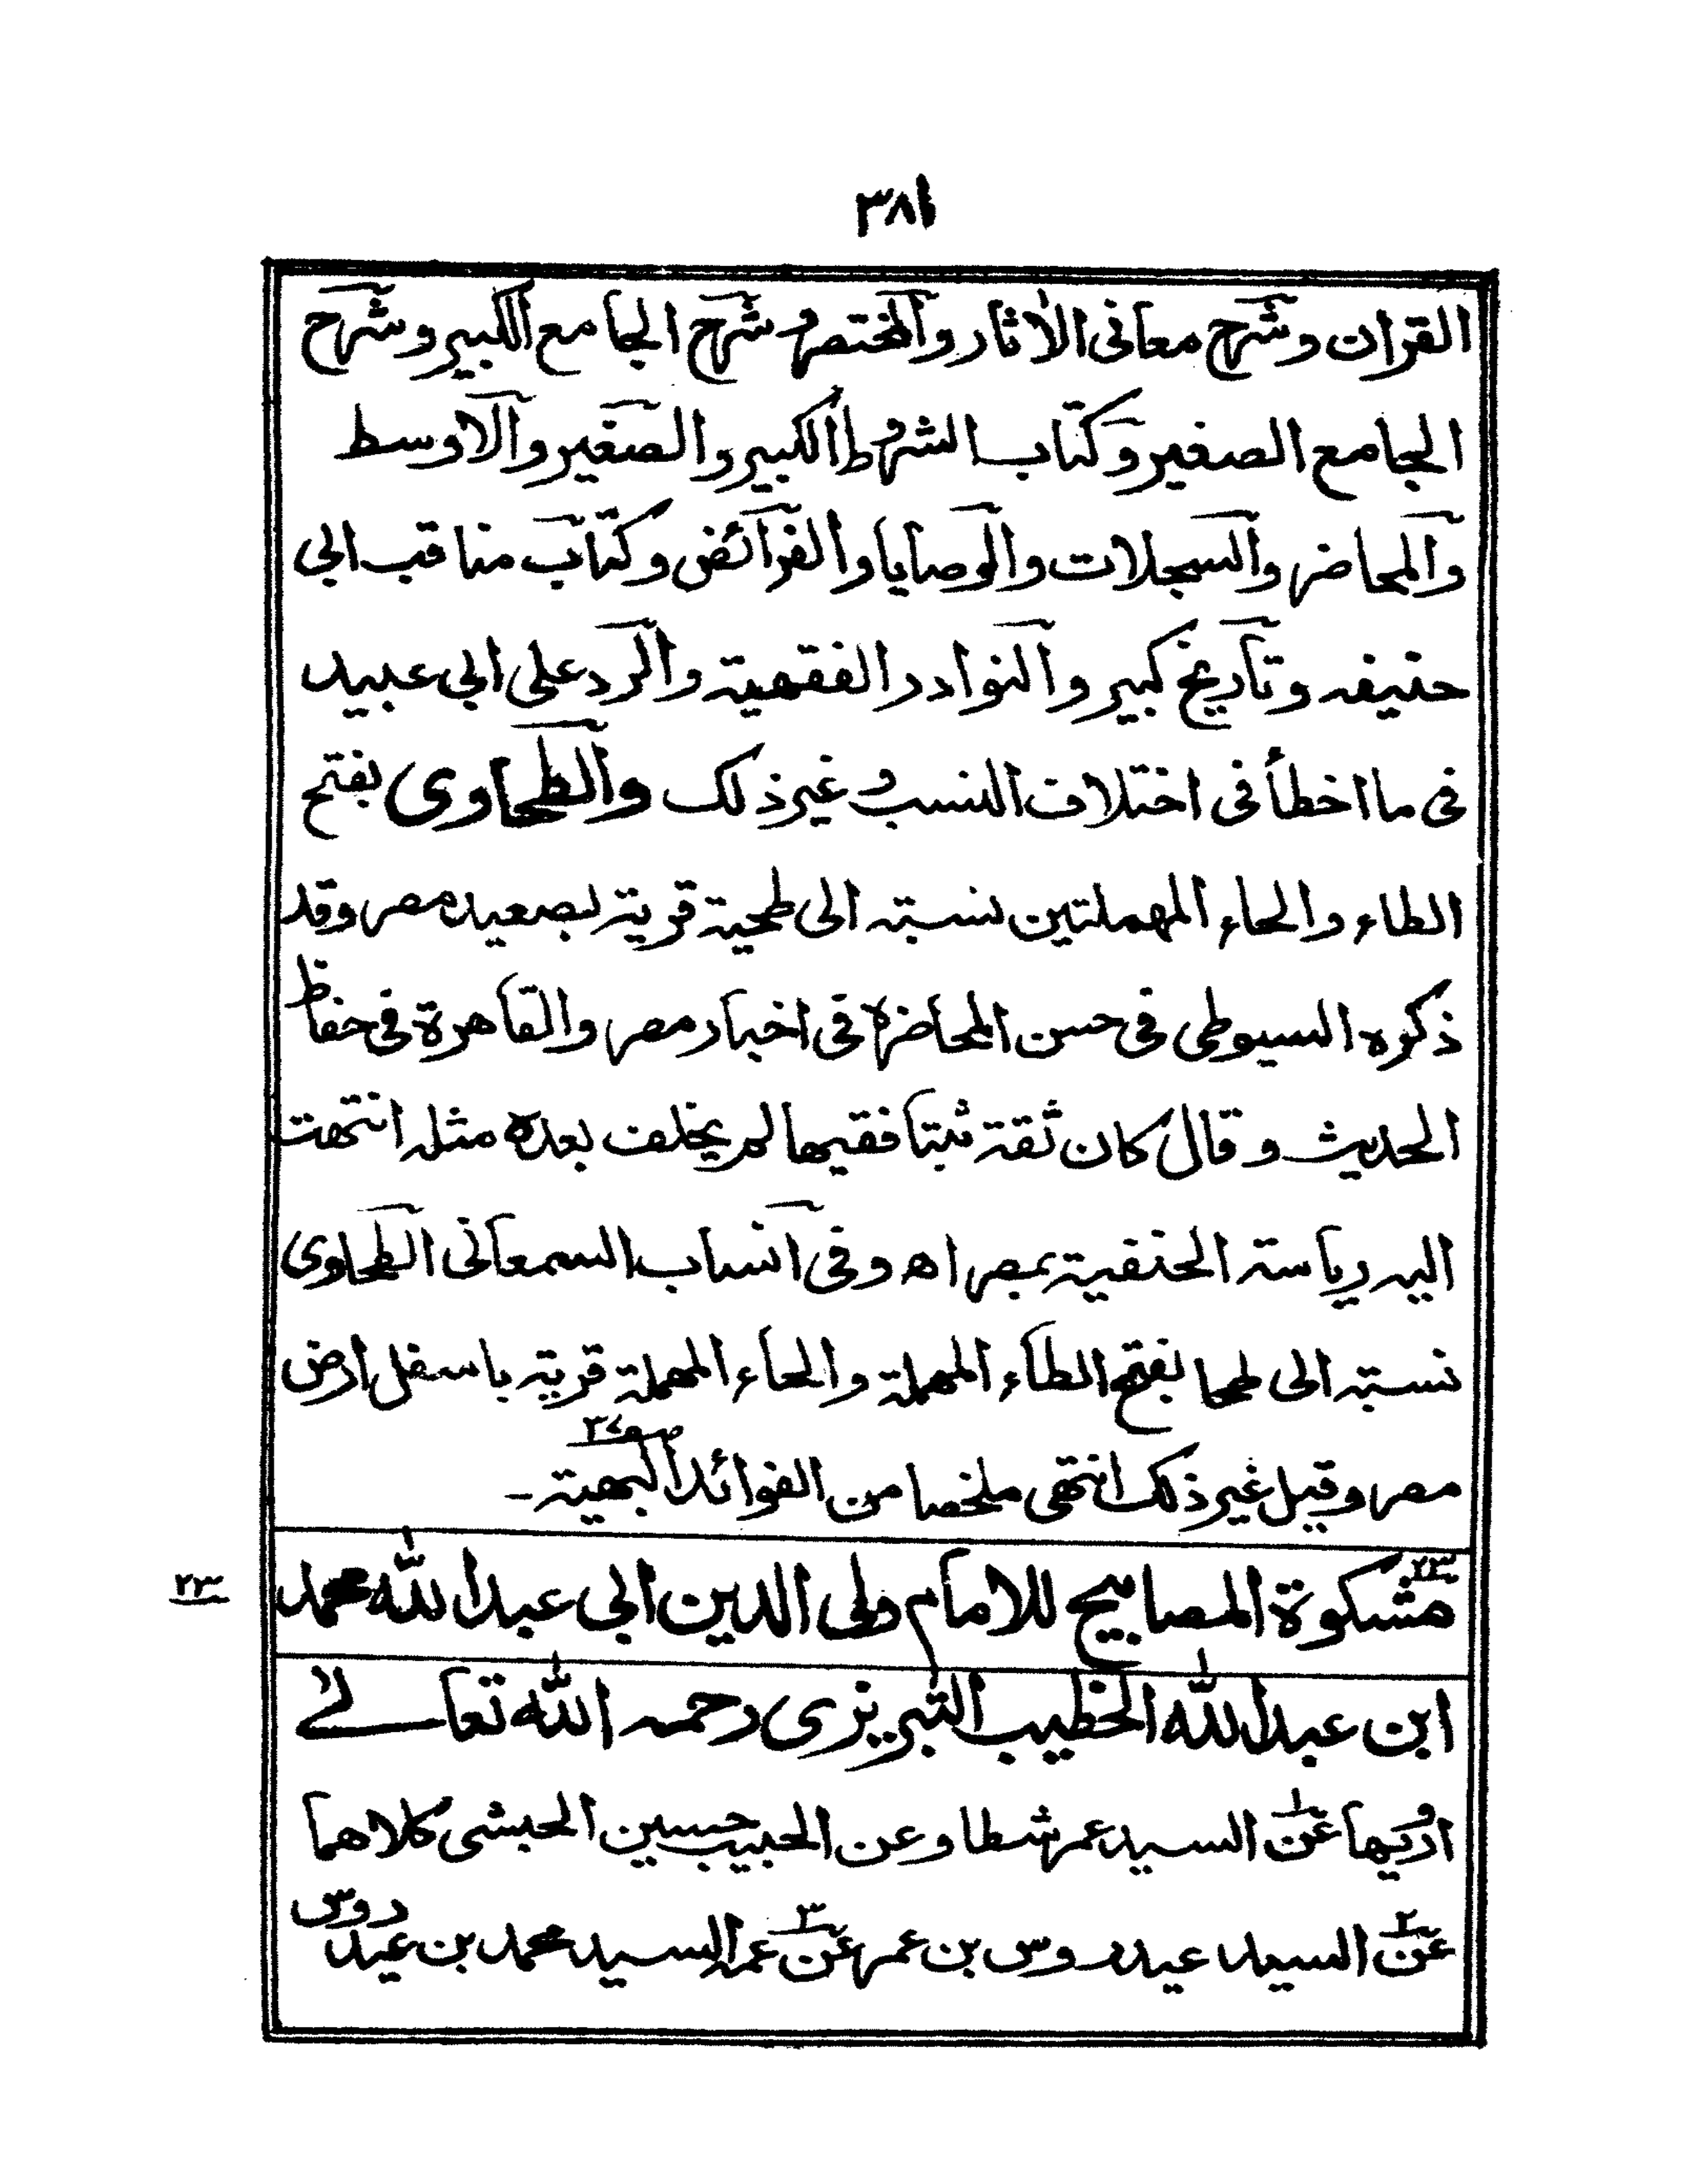 ٣٨١
القران وشرح معانى الاثار والمختصر وشرح الجامع الكبير وشرح
الجامع الصغير وكتاب الشروط الكبير والصغير والاوسط
والمحاضر والسجلات والوصايا والفرائض وكتاب مناقب ابى
حنيفه وتاريخ كبير والنوادر الفقهية والرد على ابى عبيد
فى ما اخطأ فى اختلاف النسب وغير ذلك والطحاوى بفتح
الطاء والحاء المهملتين نسبته الى طحية قرية بصعيد مصر وقد
ذكره السيوطى فى حسن المحاضرة فى اخبار مصر والقاهرة فى حفاظ
الحديث وقال كان ثقة ثبتا فقيها لم يخلف بعده مثله انتهت
اليه رياسته الحنفية بمصر اه وفى انساب السمعانى الطحاوى
نسبته الى طحا بفتح الطاء المهملة والحاء المهملة قرية باسفل ارض
مصر وقيل غير ذلك انتهى ملخصا من الفوائد البهية ـ
٢٣ مشكوة المصابيح للامام ولى الدين ابى عبد الله محمد
٢٣
ابن عبد الله الخطيب التبريزى رحمه الله تعالے
ارويها عن١ السيد عمر شطا وعن الحبيب حسين الحبشى كلاهما
عن٢ السيد عيدروس بن عمر عن٣ عمه السيد محمد بن عيدروس